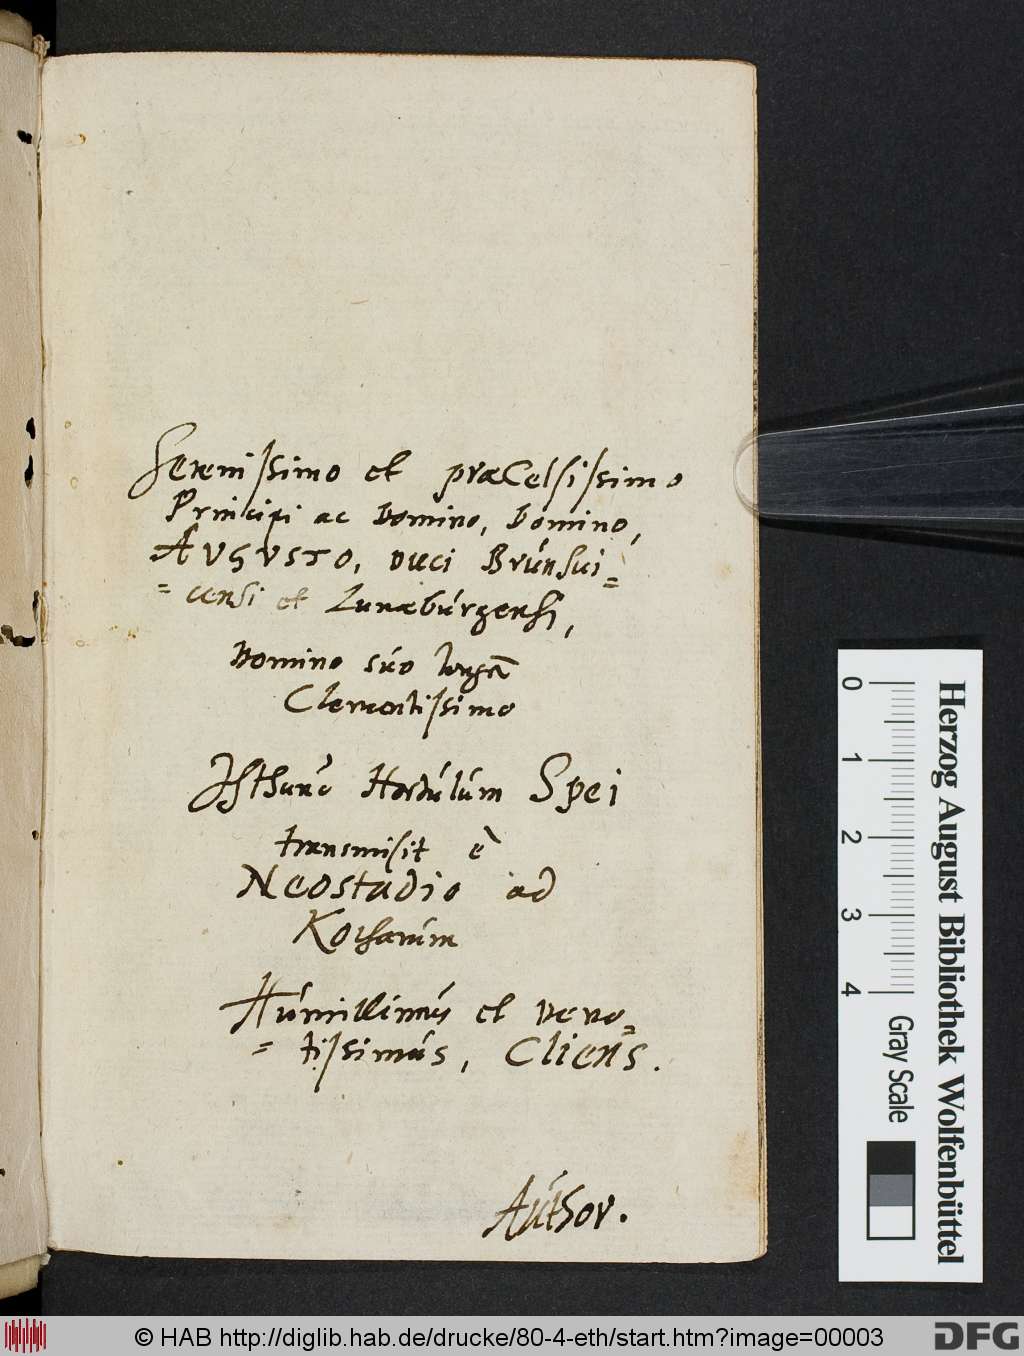 Serenissimo et præCelsissimo
Principi ac Domino, Domino,
AVGVSTO, Duci Brúnsui=
=censi et Lunæbúrgensi,
Domino súo
Clementissimo
Hortúlúm Spei
transmisit è
Neostadio ad
Húmillimús et Devo=
=tissimús, Cliens.
Aúthor.
Herzog August Bibliothek Wolfenbüttel
0 1 2 3 4 Gray Scale
© HAB http://diglib.hab.de/drucke/80-4-eth/start.htm?image=00003
DFG